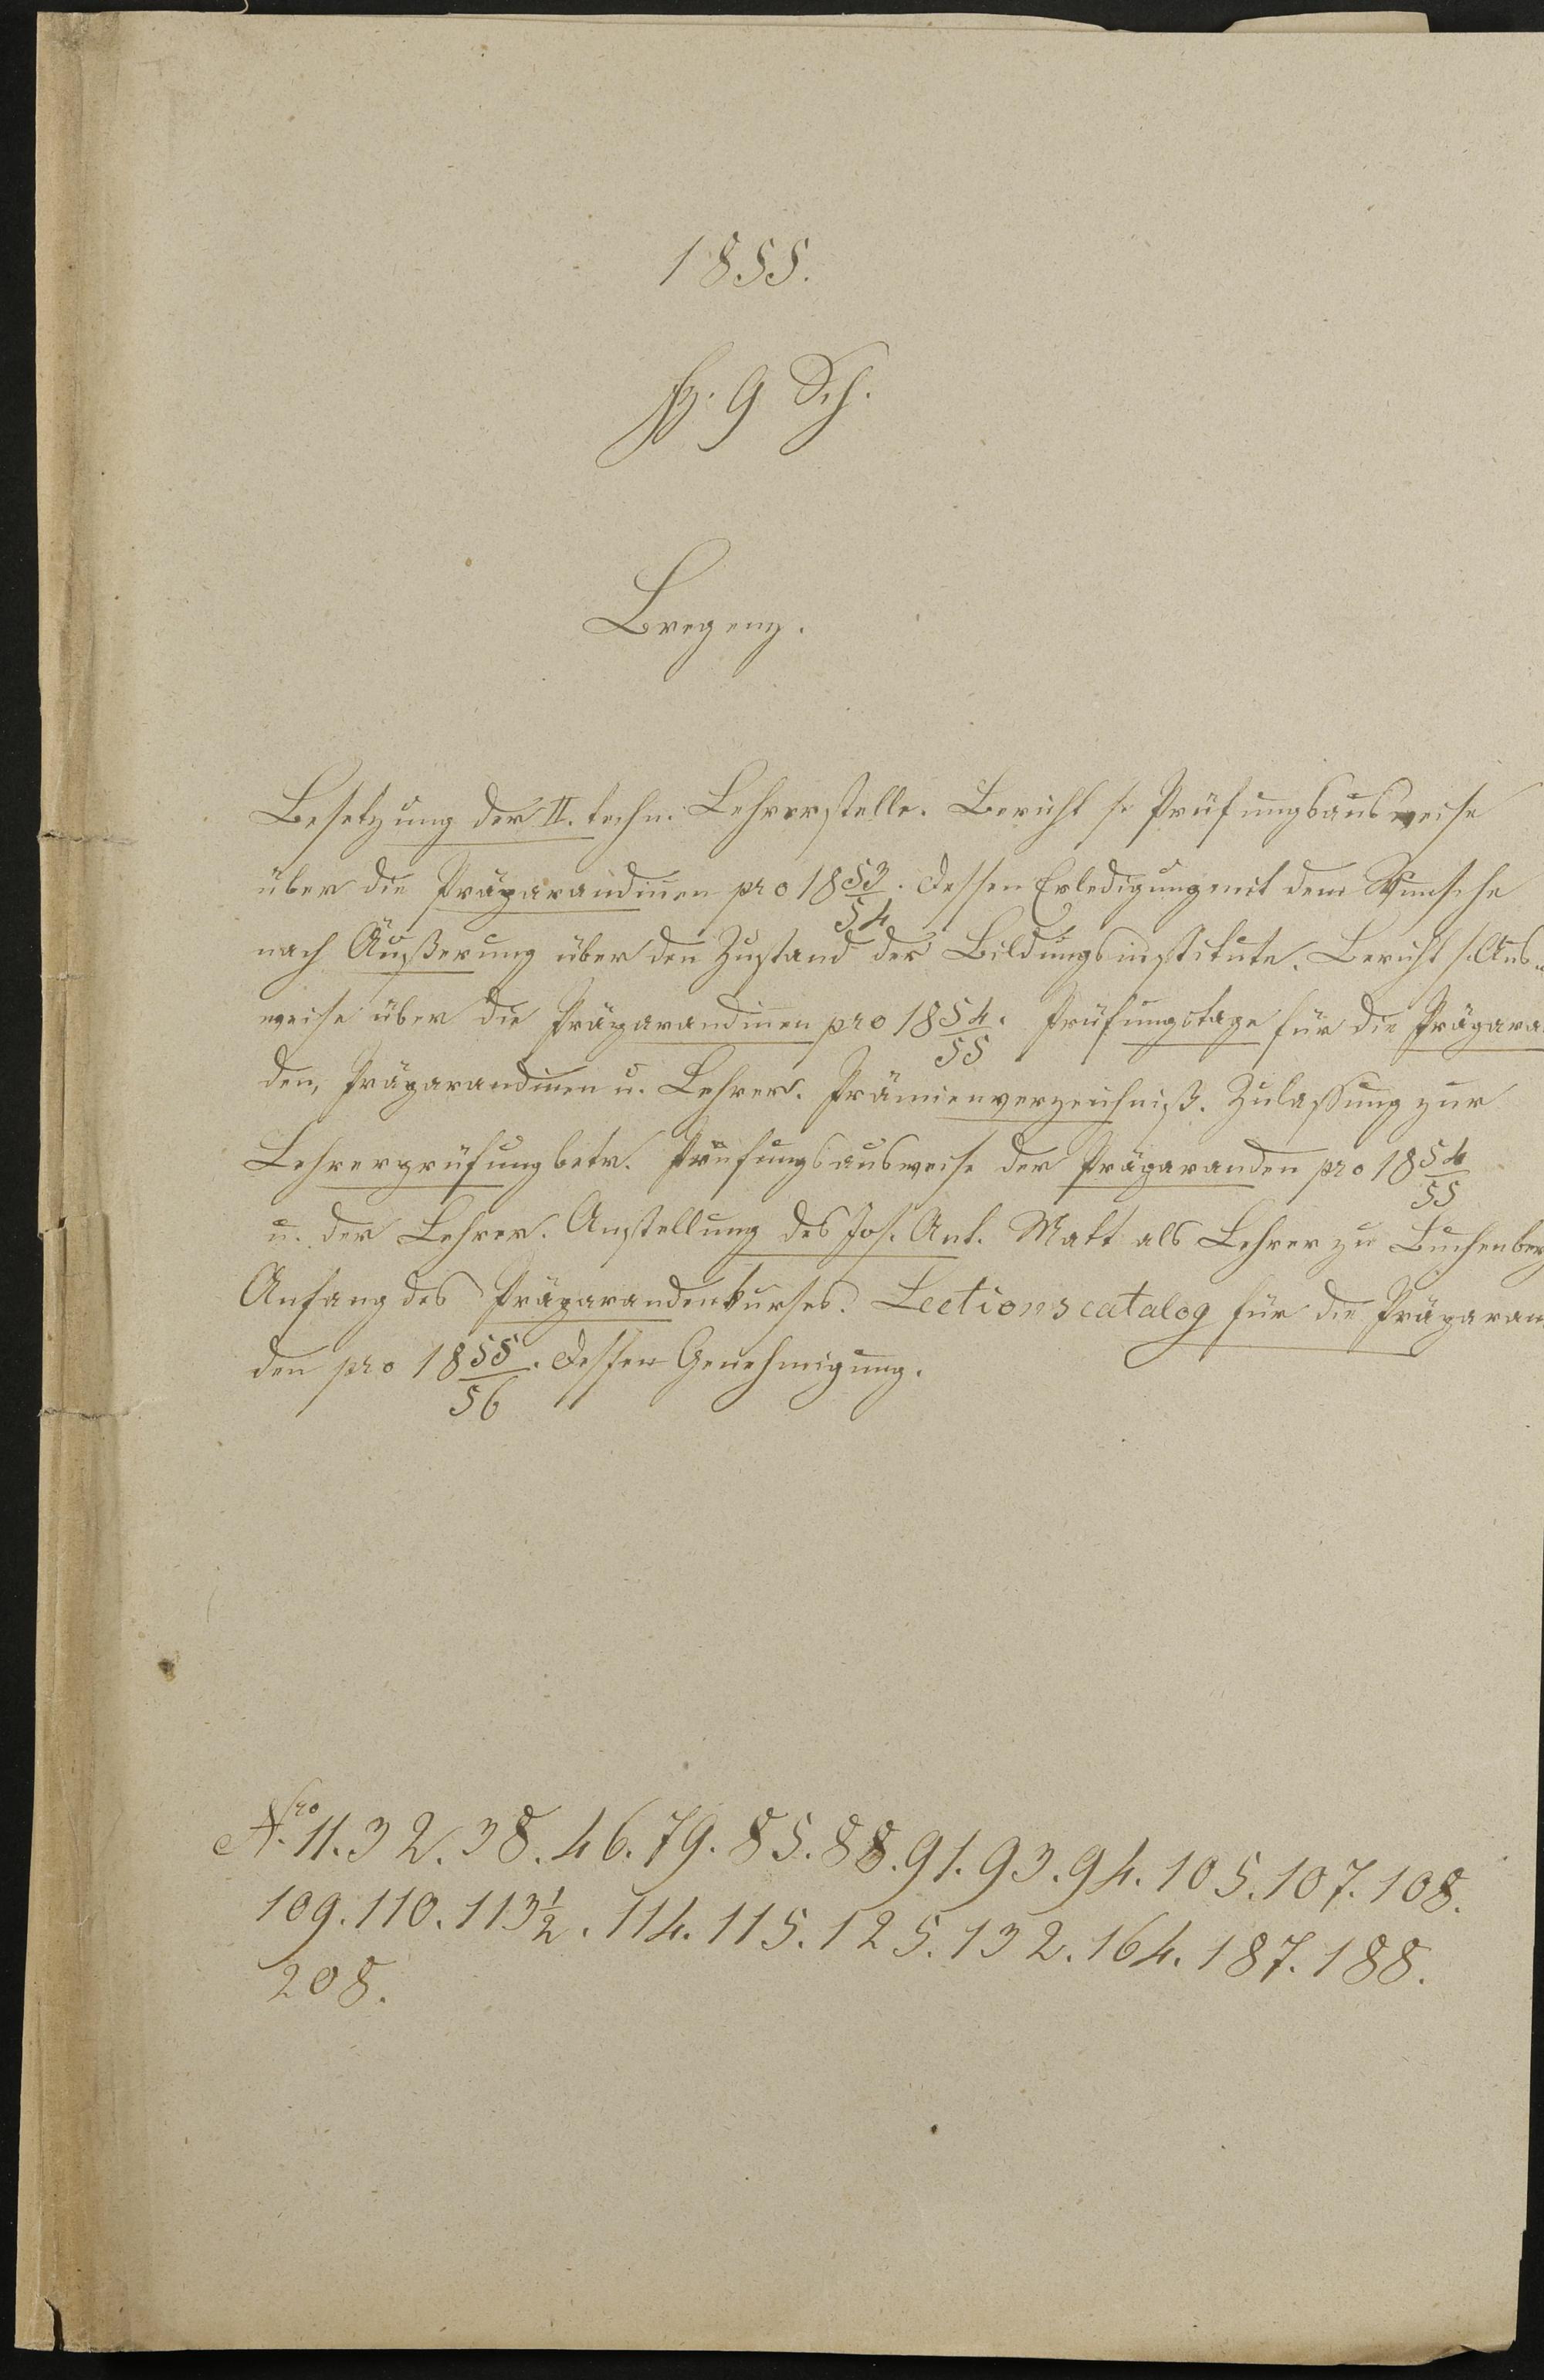 1855.
fz. 9 Sch.
Bregenz.
Besetzung der II. techn. Lehrerstelle. Bericht s. Prüfungsausweise
über die Präparandinen pro 1853/54. Dessen Erledigung mit dem Wunsche
nach Äußerung über den Zustand der Bildungsinstitute. Bericht s. Aus-
weise über die Präparandinen pro 1854/55. Prüfungstage für die Präpara
den, Präparandinen u. Lehrer. Prämienverzeichniß. Zulassung zur
Lehrerprüfung betr. Prüfungsausweise der Präparanden pro 1854/55
u. der Lehrer. Anstellung des Jos. Ant. Matt als Lehrer zu Buchenberg
Anfang des Präparandenkurses. Lectionscatalog für die Präparan
den pro 1855/56. Dessen Genehmigung.
Nro. 11. 32. 38. 46. 79. 85. 88. 91. 93. 94. 105. 107. 108.
109. 110. 113½. 114. 115. 125. 132. 164. 187. 188.
208.